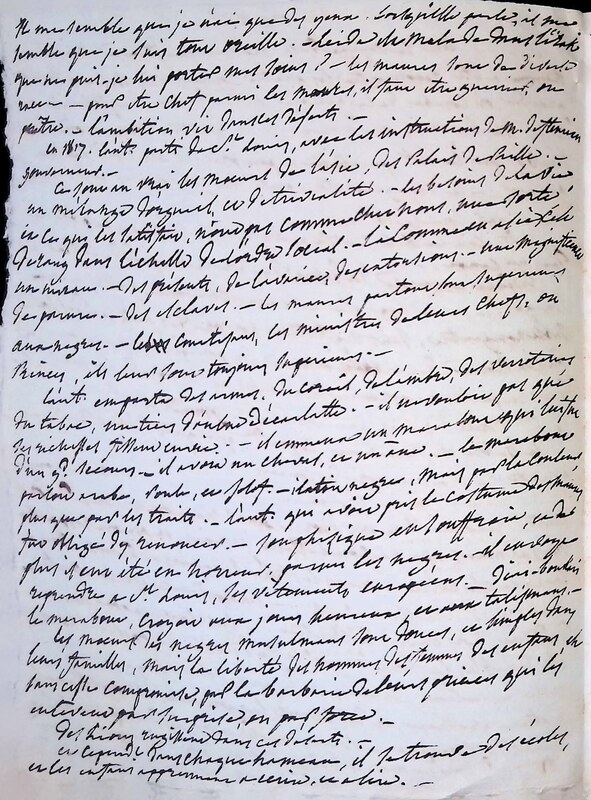 Il me semble que je n'ai que des yeux. Lorsqu'elle parle, il me
semble que je suis tout oreille. -
que ne puis-je lui porter mes soins? - les maures sont de diverses
races - pour être Chef parmi les maures, il faut être guerrier, ou
prêtre. - L'ambition vit dans les déserts. -
en 1817. L'aut. partit de St. Louis, avec les instructions de M.
gouverneur. -
Ce sont au vrai les moeurs de l'asie, des Palais de Paille. -
un mélange d'orgueil, et de trivialité. - les besoins de la vie
et ce qui les satisfait, n'ont pas comme chez nous, une sorte
de rang dans l'échelle de l'ordre social. - Là comme en asie
un niveau. - Des présents, de l'avarice, des extorsions. - une magnificence
de pauvre. - des esclaves. - les maures partout sont supérieurs
aux negres. - courtisans, les ministres de leurs chefs, ou
Princes, ils leur sont toujours supérieurs. -
L'aut. emporta des armes, du corail, de l'ambre, des verroteries
du tabac, d'écarlate. - il ne voulait pas que
ses richesses fissent envie. - il emmena un marabout qui lui fut
d'un gd. secours - il avait un cheval, et un âne. - le marabout
parlait arabe, foule, et jolof. - negre, mais par la couleur
plus que par les traits. - L'aut. qui avait pris le costume des maures,
fut obligé d'y renoncer. - son phisique en souffrait, et de
plus il eut été en horreur, parmi les negres. - il envoya
reprendre à St. Louis, ses vêtements européens. -
le marabout, croyait aux jours heureux, et aux talismans. -
les moeurs des negres musulmans sont douces, et simples dans
leurs familles, mais la liberté des hommes, des femmes des enfans, est
sans cesse compromise, par la barbarie de leurs princes qui les
enlevent par surprise ou par force. -
Des lions rugissent dans ces déserts. -
et cependt. dans chaque hameau, il se trouve des écoles,
et les enfans apprennent à écrire, et à lire. -